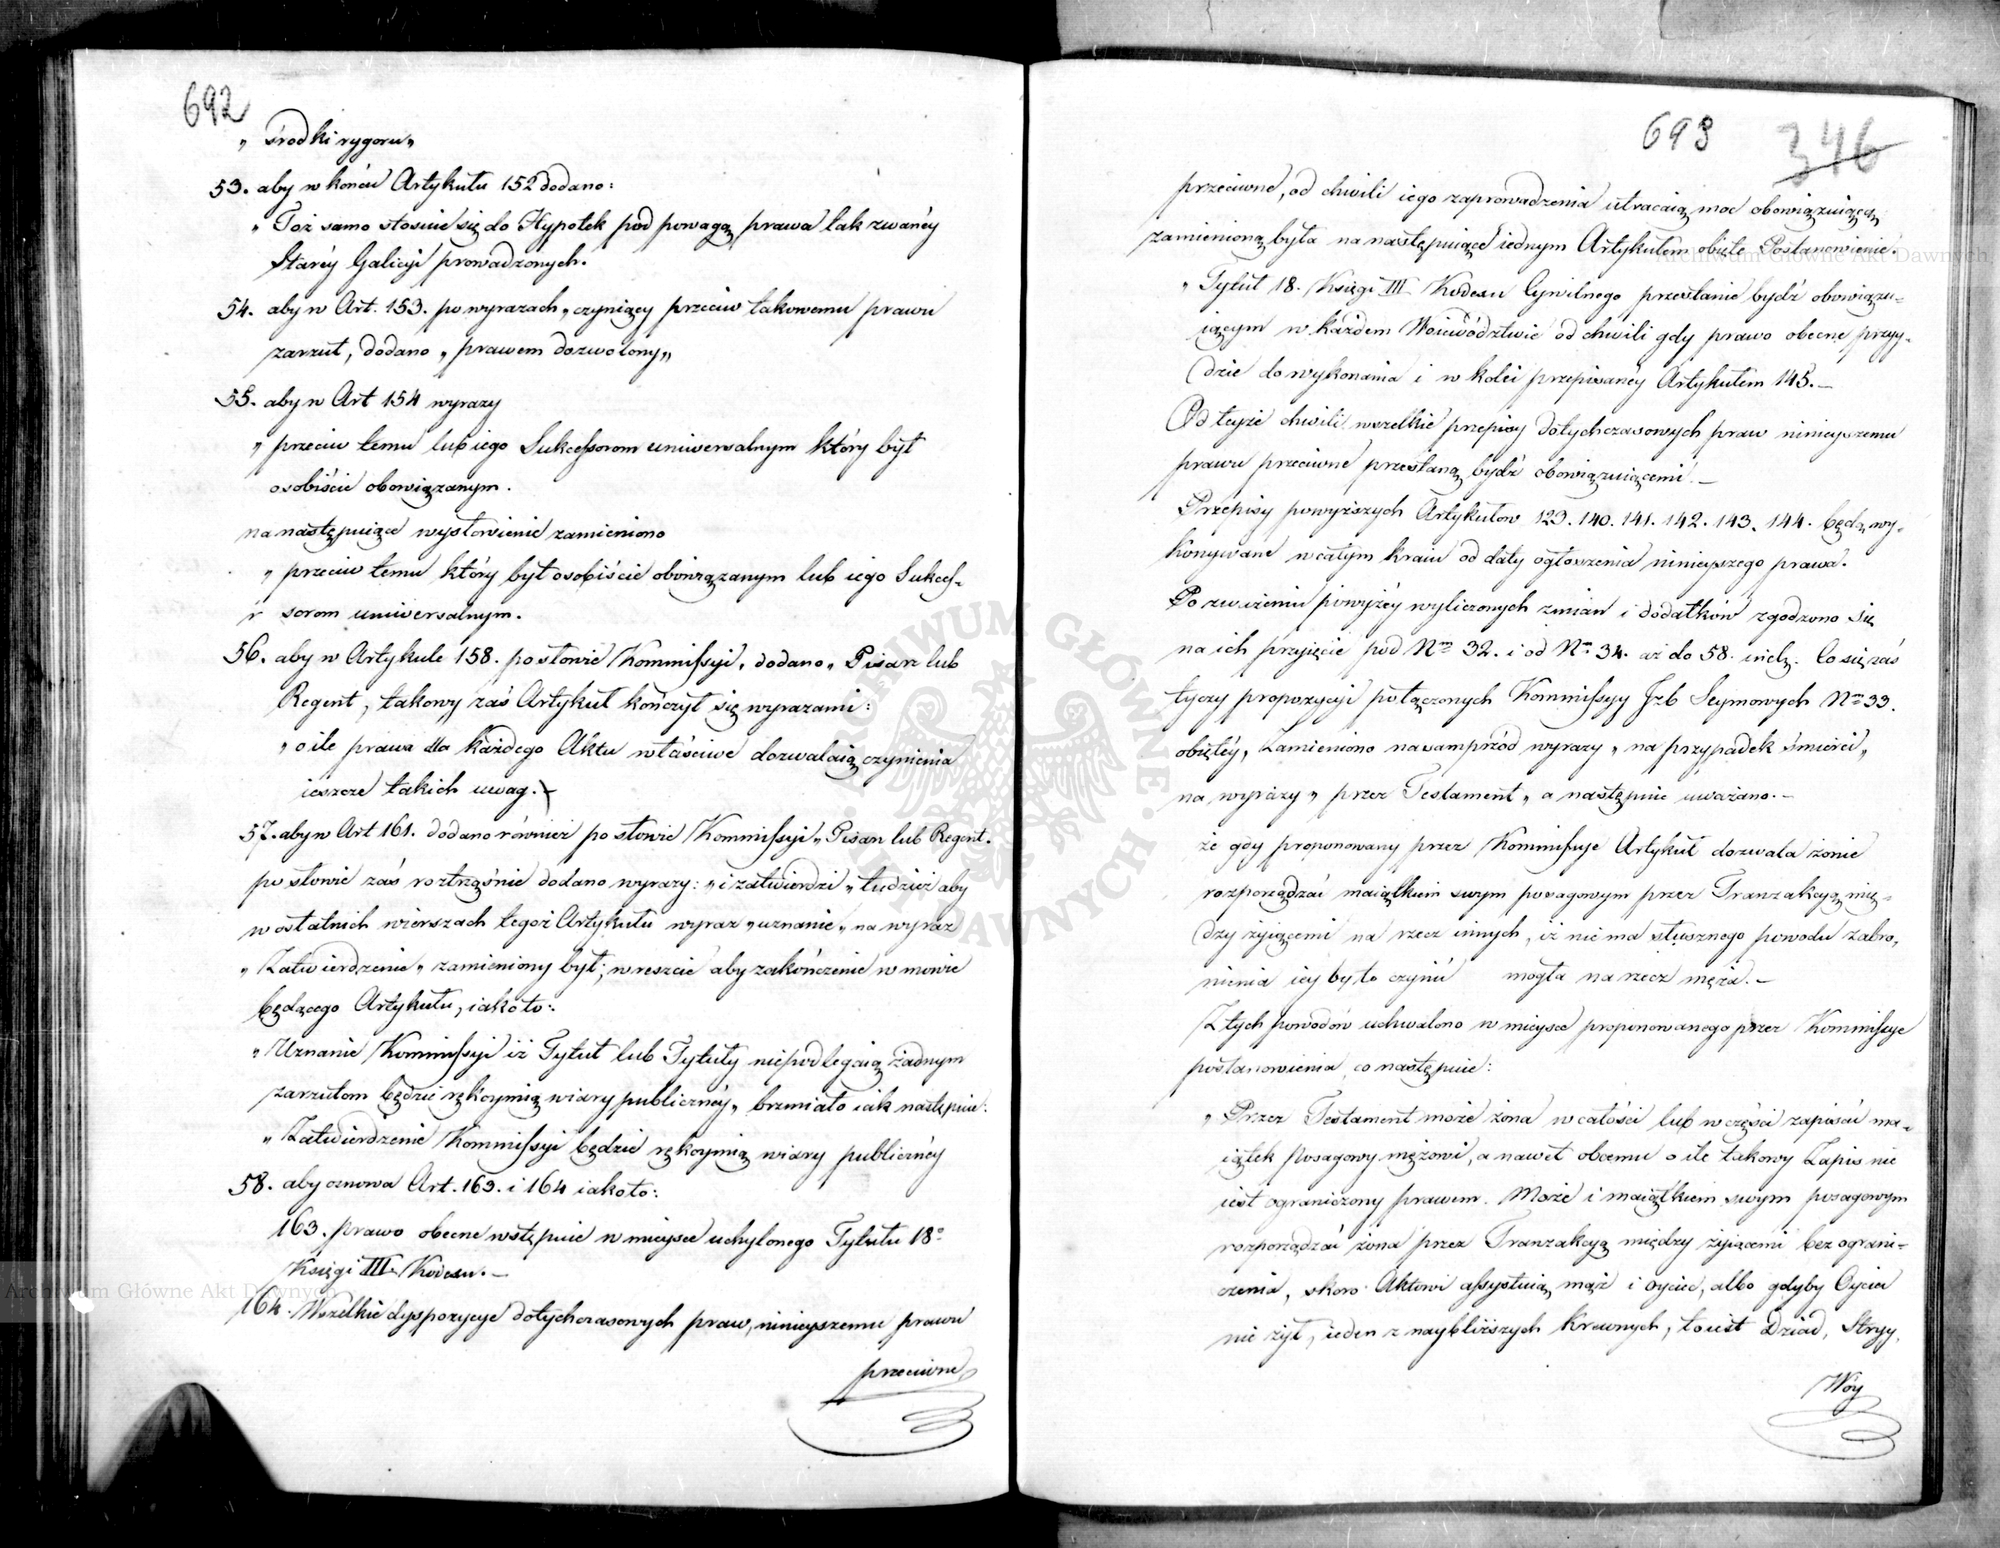 692
„ środki rygoru„
53. aby w końcu Artykułu 152 dodano:
„ Toż samo stosuie się do Hypotek pod powagą prawa tak zwanéy
Staréy Galicyi prowadzonych.
54. aby w Art. 153. po wyrazach „czyniący przeciw takowemu prawu
zarzut, dodano „ prawem dozwolony„
55. aby w Art 154 wyrazy
„ przeciw temu lub iego Sukcessorom uniwersalnym który był
osobiście obowiązanym.
na następuiące wysłowienie zamieniono
„ przeciw temu który był osobiście obowiązanym lub iego Sukces-
sorom uniwersalnym.
56. aby w Artykule 158. po słowie Kommissyi, dodano „ Pisarz lub
Regent, takowy zaś Artykuł kończył się wyrazami:
„ o ile prawa dla każdego Aktu właściwe dozwalaią czynienia
ieszcze takich uwag.
57. aby w Art 161. dodano również po słowie Kommissyi „ Pisarz lub Regent.
po słowie zaś roztrząśnie dodano wyrazy: „ i zatwierdzi „ tudzież aby
w ostatnich wierszach tegoż Artykułu wyraz „uznanie„ na wyraz
„ Zatwierdzenie „ zamieniony był; wreszcie aby zakończenie w mowie
będącego Artykułu, iako to:
„ Uznanie Kommissyi iż Tytuł lub Tytuły niepodlegaią żadnym
zarzutom będzie rękoymią wiary publicznéy„ brzmiało iak następuie:
„ Zatwierdzenie Kommissyi będzie rękoymią wiary publicznéy
58. aby osnowa Art. 163. i 164 iako to:
163. prawo obecne wstępuie w mieysce uchylonego Tytułu 18º
Księgi III. Kodexu. —
164. Wszelkie dyspozycye dotychczasowych praw, ninieyszemu prawu
przeciwne
693 346
przeciwne, od chwili iego zaprowadzenia utracaią moc obowiązuiącą,
zamienioną była na następuiące iednym Artykułem obięte Postanowienie:
„ Tytuł 18. Księgi III Kodexu Cywilnego przestanie bydź obowiązu-
iącym w każdem Woiewództwie od chwili gdy prawo obecne przyy-
dzie do wykonania i w kolei przepisanéy Artykułem 145. —
Od teyże chwili wszelkie przepisy dotychczasowych praw ninieyszemu
prawu przeciwne przestaną bydź obowiązuiącemi. —
Przepisy powyższych Artykułów 123. 140. 141. 142. 143. 144. będą wy-
konywane w całym kraiu od daty ogłoszenia ninieyszego prawa.
Po zważeniu powyżéy wyliczonych zmian i dodatków zgodzono się
na ich przyięcie pod Nrm 32. i od Nr 34. aż do 58. inclz. Co się zaś
tyczy propozycyi połączonych Kommissyy Jzb Seymowych Nrm 33.
obiętéy, Zamieniono nasamprzód wyrazy „ na przypadek śmierci„
na wyrazy „ przez Testament „ a następnie uważano. —
że gdy proponowany przez Kommissye Artykuł dozwala żonie
rozporządzać maiątkiem swym posagowym przez Tranzakcyą mię-
dzy żyiącemi na rzecz innych, iż nie ma słusznego powodu zabro-
nienia iey by to czynić mogła na rzecz męża. —
Z tych powodów uchwalono w mieysce proponowanego przez Kommissye
postanowienia co następuie:
„ Przez Testament może żona w całości lub w części zapisać ma-
iątek Posagowy mężowi, a nawet obcemu o ile takowy Zapis nie
iest ograniczony prawem. Może i maiątkiem swym posagowym
rozporządzać żona przez Tranzakcyą między żyiącemi bez ograni-
czenia, skoro Aktowi assystuią mąż i oyciec, albo gdyby Oyciec
nie żył, ieden z naybliższych krewnych, to iest Dziad, Stryy,
Wóy